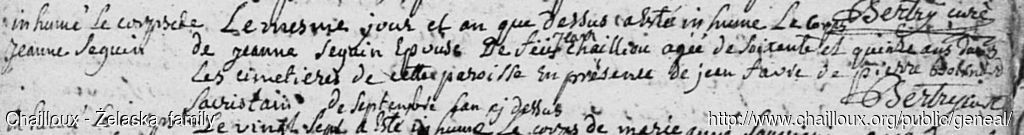 Bertry curé
inhumé le corps de Le mesme jour et an que dessus a esté inhumé Le corps
jeanne seguin de jeanne seguin Epouse De feu jean chailliou agée de soixante et quinze ans dans
Les cimetieres de cette paroisse En présence De jean favre de pierre
sacristain de septembre l'an cy dessus Bertry curé
Le vingt sept a esté inhumé Le corps de marie anne
Chailloux - Żelaska family http://www.chailloux.org/public/geneal/